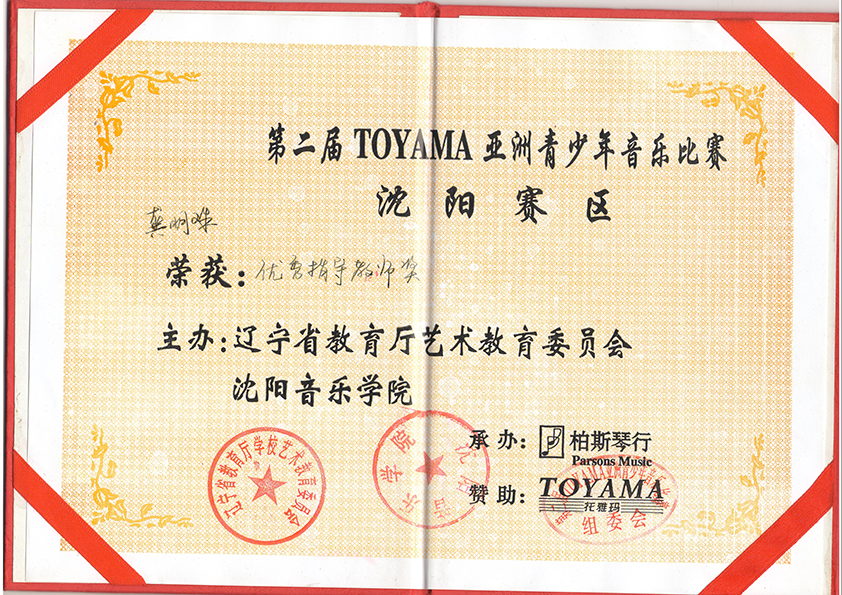 第二届 TOYAMA 亚洲青少年音乐比赛
沈阳赛区
龚明姝
荣获：优秀指导教师奖
主办：辽宁省教育厅艺术教育委员会
沈阳音乐学院
承办：柏斯琴行
Parsons Music
赞助：TOYAMA
托雅玛
辽宁省教育厅学校艺术教育委员会
沈阳音乐学院
组委会